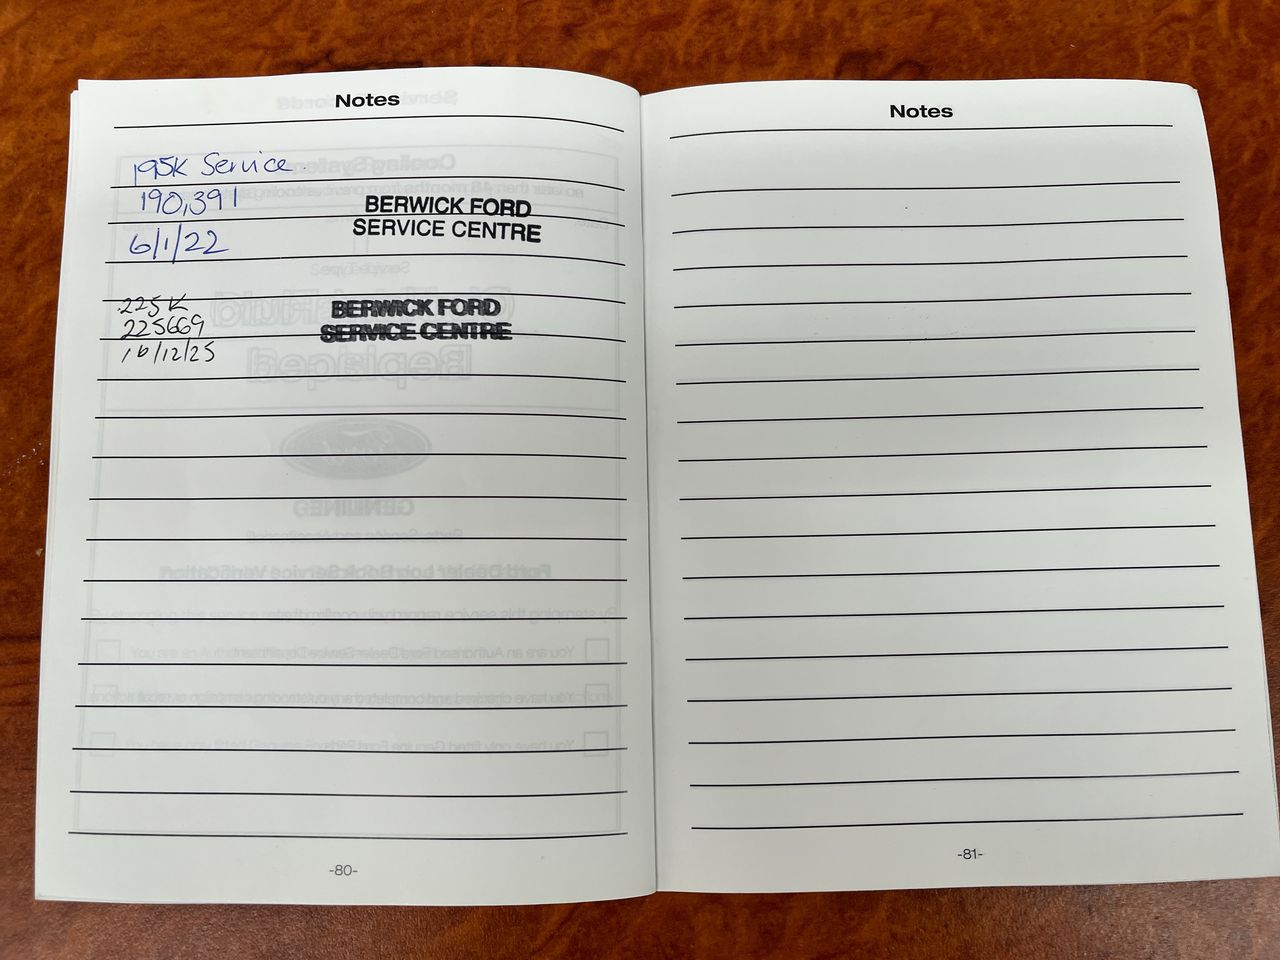 Notes
195K Service
190,391
6/1/22
BERWICK FORD
SERVICE CENTRE
225K
225669
16/12/25
BERWICK FORD
SERVICE CENTRE
-80-
Notes
-81-